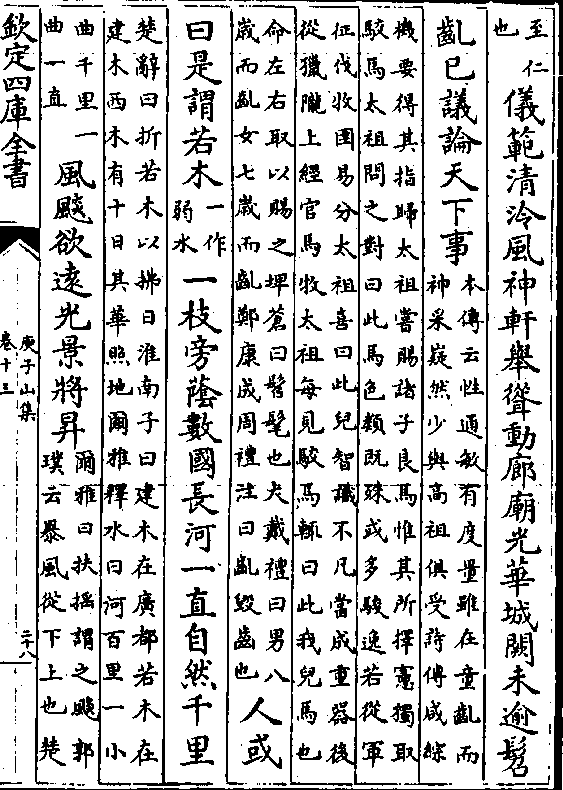 至仁
也
儀範清泠風神軒舉聳動廊廟光華城闕未逾髫
齓已議論天下事
本傳云性通敏有度量雖在童齓而
神采嶷然少與高祖俱受詩傳咸綜
機要得其指歸太祖嘗賜諸子良馬惟其所擇憲獨取
駮馬太祖問之對曰此馬色類既殊或多駿逸若從軍
征伐牧圉易分太祖喜曰此兒智識不凡當成重器後
從獵隴上經官馬牧太祖每見駮馬輒曰此我兒馬也
命左右取以賜之埤蒼曰髫髦也大戴禮曰男八
歲而齓女七歲而齓鄭康成周禮注曰齓毀齒也
人或
曰是謂若木
一作
弱水
一枝旁蔭數國長河一直自然千里
楚辭曰折若木以拂日淮南子曰建木在廣都若木在
建木西末有十日其華照地爾雅釋水曰河百里一小
曲千里一
曲一直
風飈欲遠光景將昇
爾雅曰扶揺謂之飈郭
璞云暴風從下上也楚
欽定四庫全書
庾子山集
卷十三
二十八